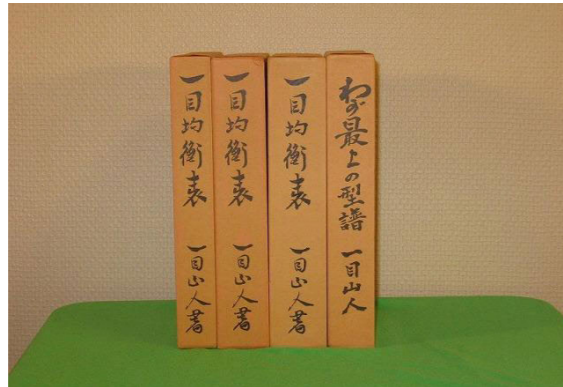 一目均衡表 一目山人著
一目均衡表 一目山人著
一目均衡表 一目山人著
わが最上の型譜 一目山人